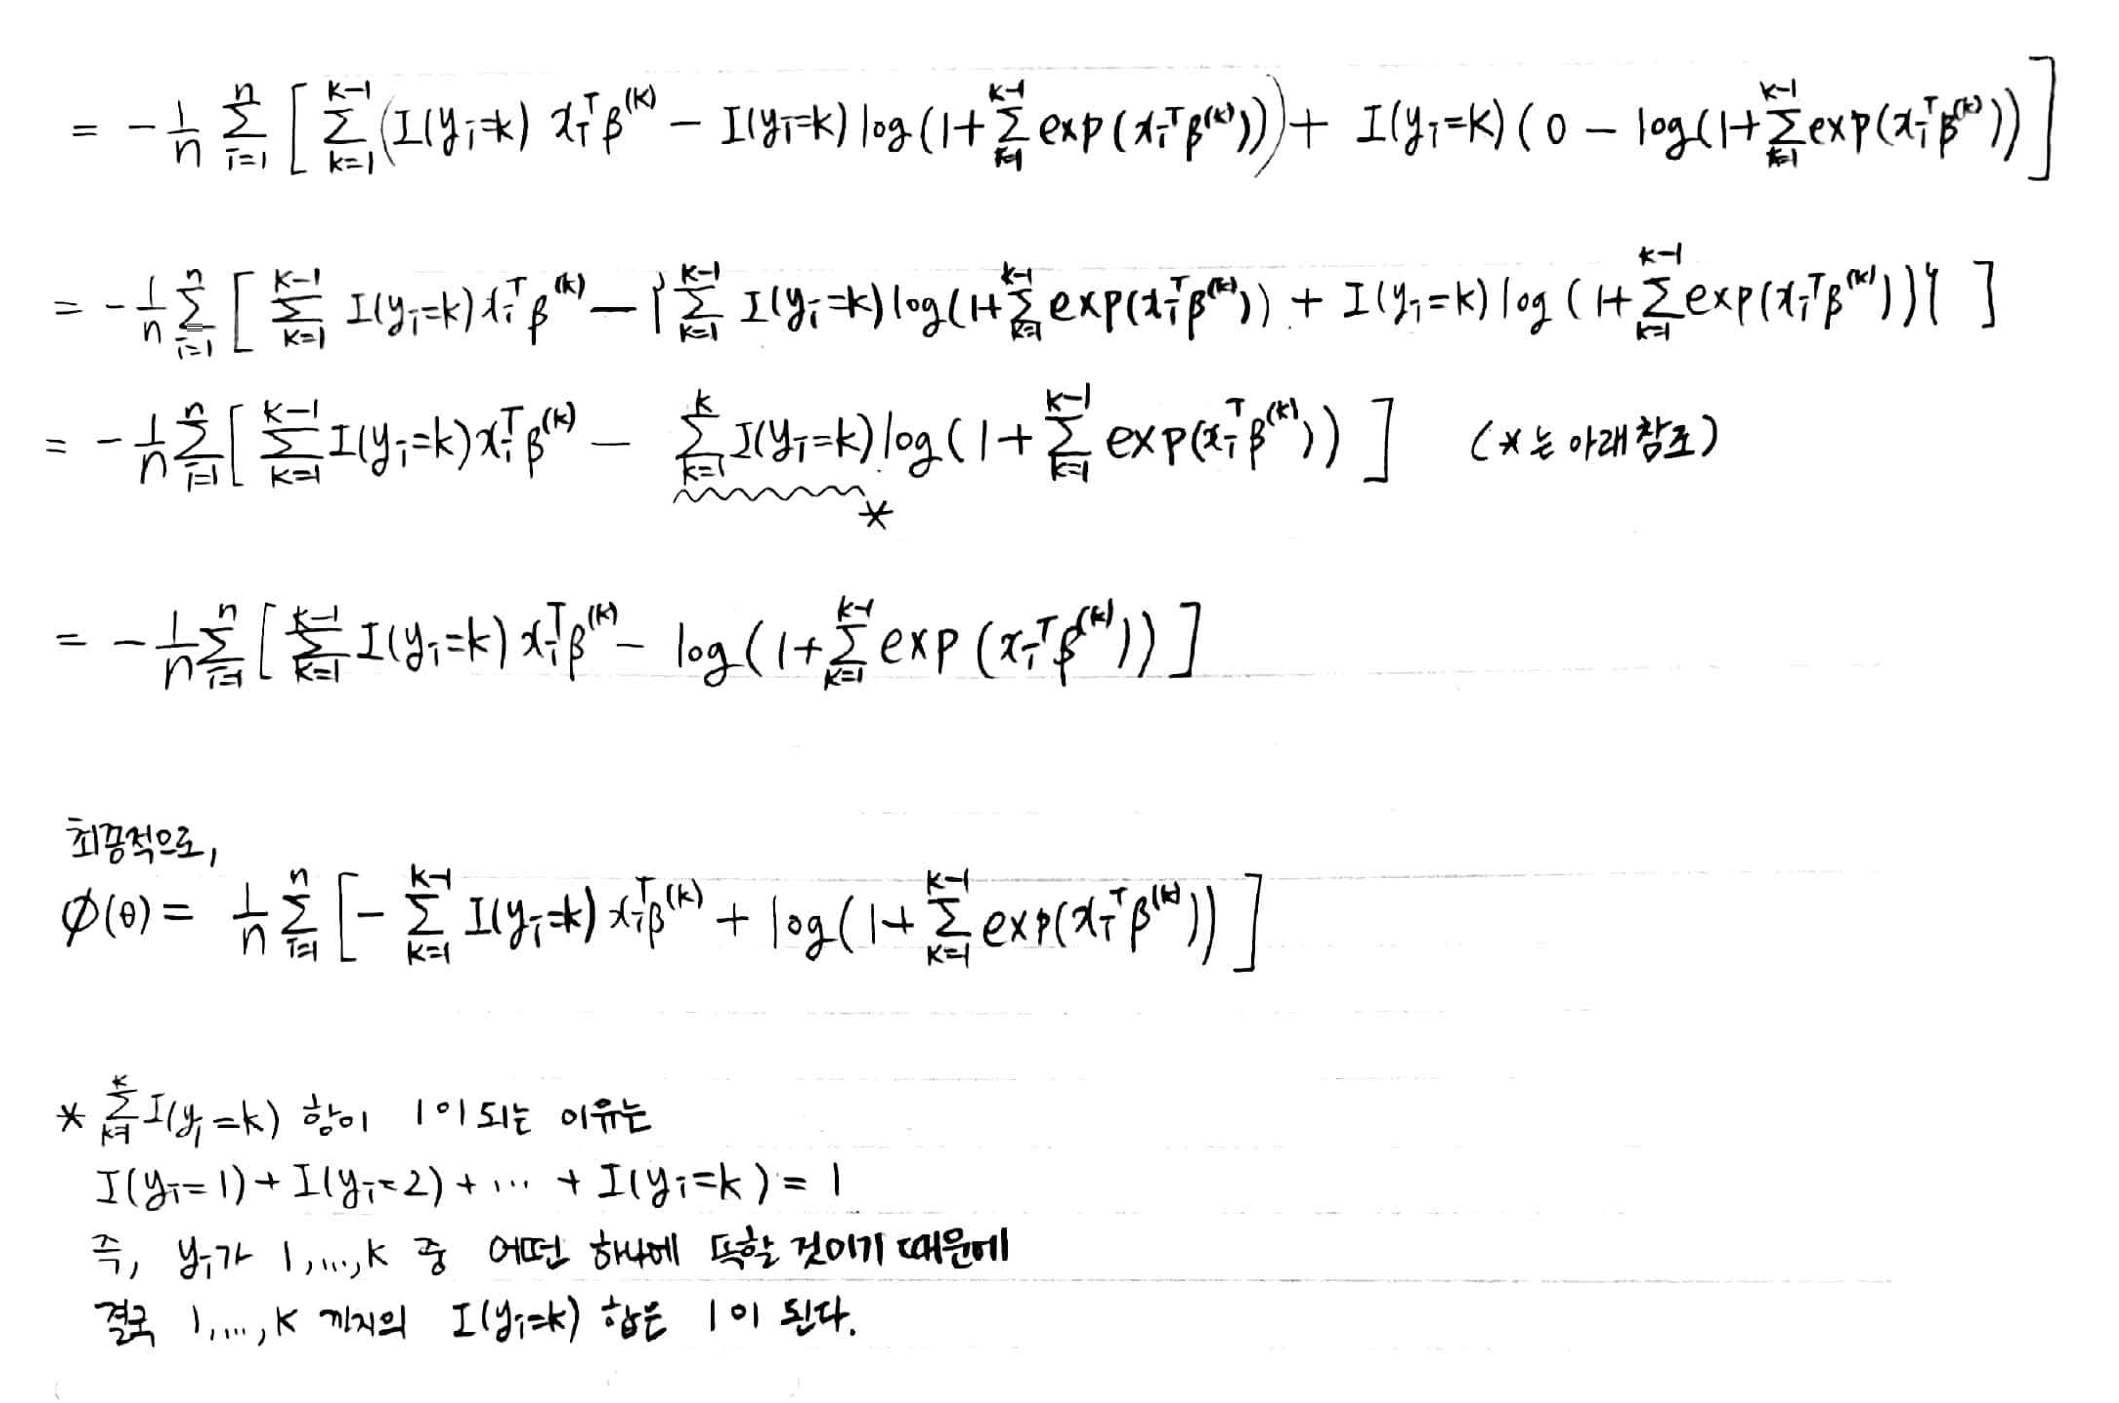 = -\frac{1}{n} \sum_{i=1}^{n} [ \sum_{k=1}^{K-1} (I(y_i=k) x_i^T β^{(k)} - I(y_i=k) log(1+\sum_{k=1}^{K-1} exp(x_i^T β^{(k)}))) + I(y_i=K) (0 - log(1+\sum_{k=1}^{K-1} exp(x_i^T β^{(k)})) ]
= -\frac{1}{n} \sum_{i=1}^{n} [ \sum_{k=1}^{K-1} I(y_i=k) x_i^T β^{(k)} - { \sum_{k=1}^{K-1} I(y_i=k) log(1+\sum_{k=1}^{K-1} exp(x_i^T β^{(k)})) + I(y_i=K) log(1+\sum_{k=1}^{K-1} exp(x_i^T β^{(k)})) } ]
= -\frac{1}{n} \sum_{i=1}^{n} [ \sum_{k=1}^{K-1} I(y_i=k) x_i^T β^{(k)} - \sum_{k=1}^{K} I(y_i=k) log(1+\sum_{k=1}^{K-1} exp(x_i^T β^{(k)})) ] (*는 아래참조)
*
= -\frac{1}{n} \sum_{i=1}^{n} [ \sum_{k=1}^{K-1} I(y_i=k) x_i^T β^{(k)} - log(1+\sum_{k=1}^{K-1} exp(x_i^T β^{(k)})) ]
최종적으로,
∅(θ) = \frac{1}{n} \sum_{i=1}^{n} [ - \sum_{k=1}^{K-1} I(y_i=k) x_i^T β^{(k)} + log(1+\sum_{k=1}^{K-1} exp(x_i^T β^{(k)})) ]
* \sum_{k=1}^{K} I(y_i=k) 항이 1이되는 이유는
I(y_i=1)+I(y_i=2)+ ... + I(y_i=K) = 1
즉, y_i가 1,...,K 중 어떤 하나에 속할 것이기 때문에
결국 1,...,K 까지의 I(y_i=k) 합은 1이 된다.